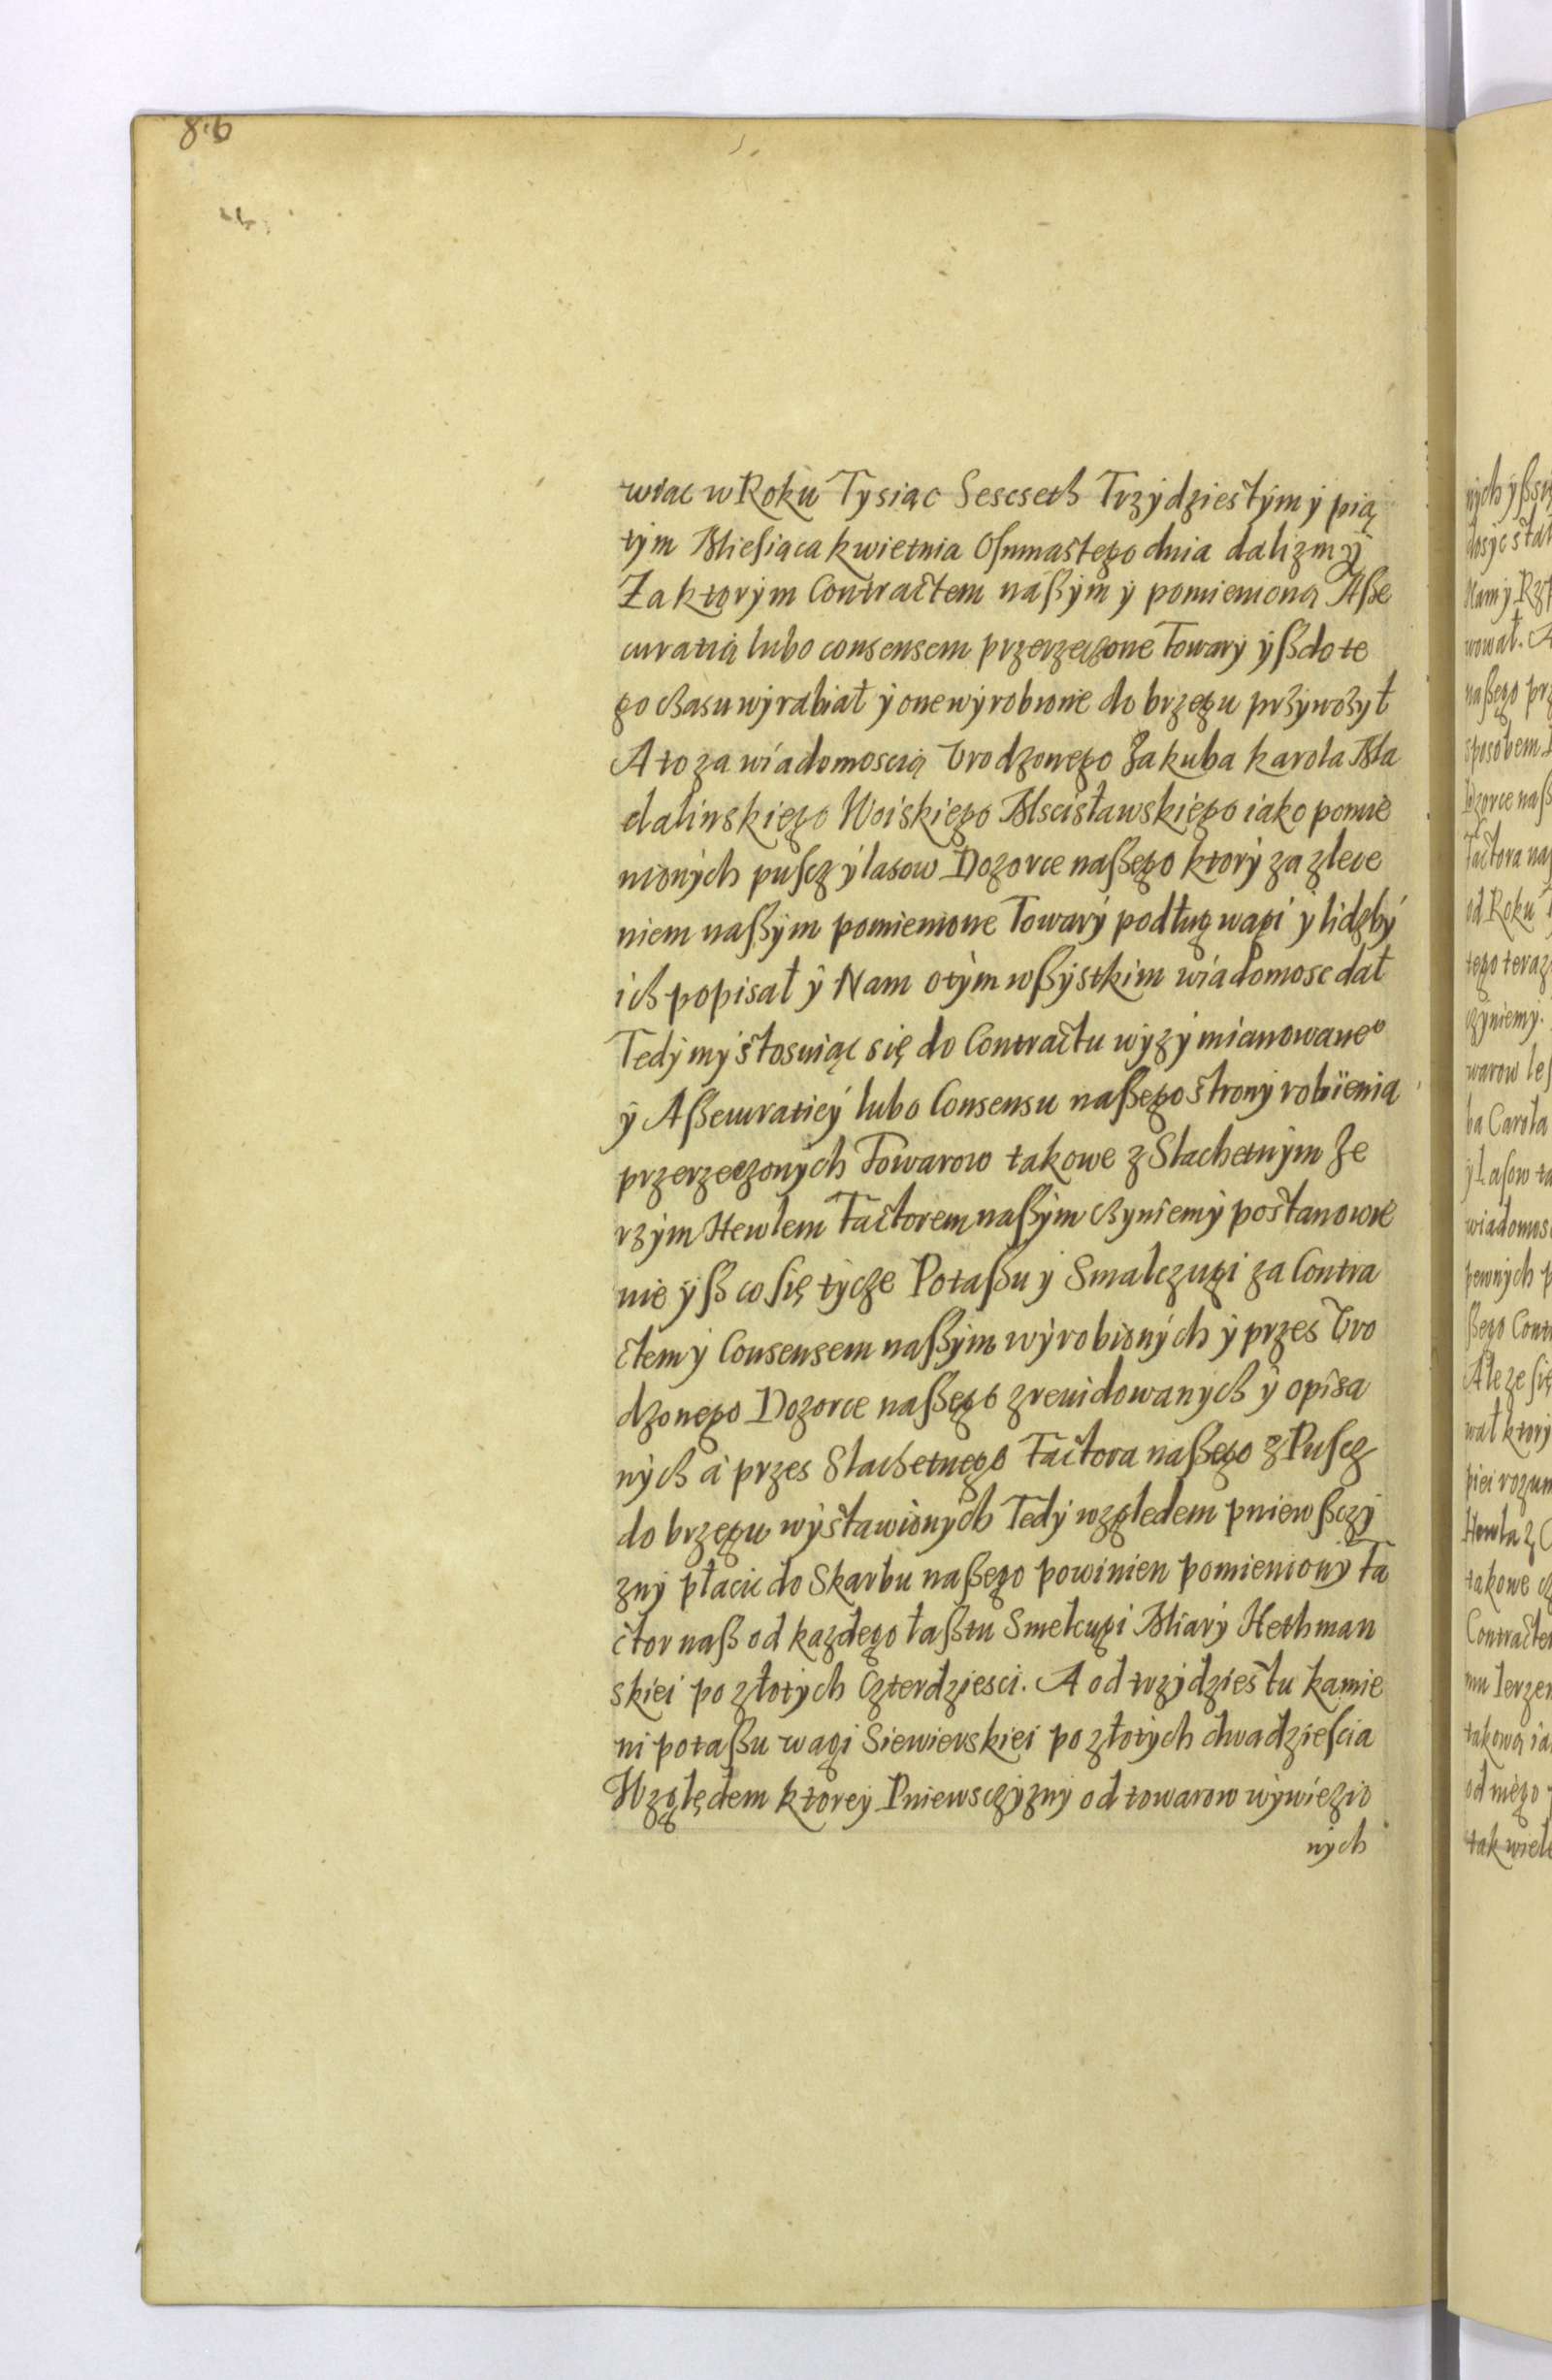 86
wiac w Roku Tysiąc Sescseth Trzydziestym y pią
tym Miesiąca kwietnia Osmnastego dnia dalizmy
Za ktorym Contractem naszym y pomieniona Asse
curatią lubo consensem przerzeczone Towary yszdo te
go czasu wyrabiał y one wyrobione do brzegu przywozył
A to za wiadomoscią Urodzonego Jakuba karola Ma
dalinskiego Woiskiego Mscisławskiego iako pomie
nionych puscz y lasow Dozorce naszego ktory za zlece
niem naszym pomienione Towary podług wagi y lidzby
ich popisał y Nam o tym wszystkim wiadomosc dał
Tedy my stosuiąc się do Contractu wyzy mianowaneo
y Assecuratiey lubo Consensu naszego strony robienia
przerzeczonych Towarow takowe z Slachetnym Je
rzym Hewlem Factorem naszym czyniemy postanowie
nie ysz co się tycze Potaszu y Smalczugi za Contra
ctem y Consensem naszym wyrobionych y przes Uro
dzonego Dozorce naszego zrewidowanych y opisa
nych a przes Slachetnego Factora naszego z Puscz
do brzegu wystawionych Tedy względem pniewszczy
zny płacic do Skarbu naszego powinien pomieniony Fa
ctor nasz od kazdego łasztu Smelcugi Miary Hethman
skiei po złotych Czterdziesci. A od trzydziestu kamie
ni potaszu wagi Siewierskiei po złotych dwadziescia
Względem ktorey Pniewsczyzny od towarow wywiezio
nych